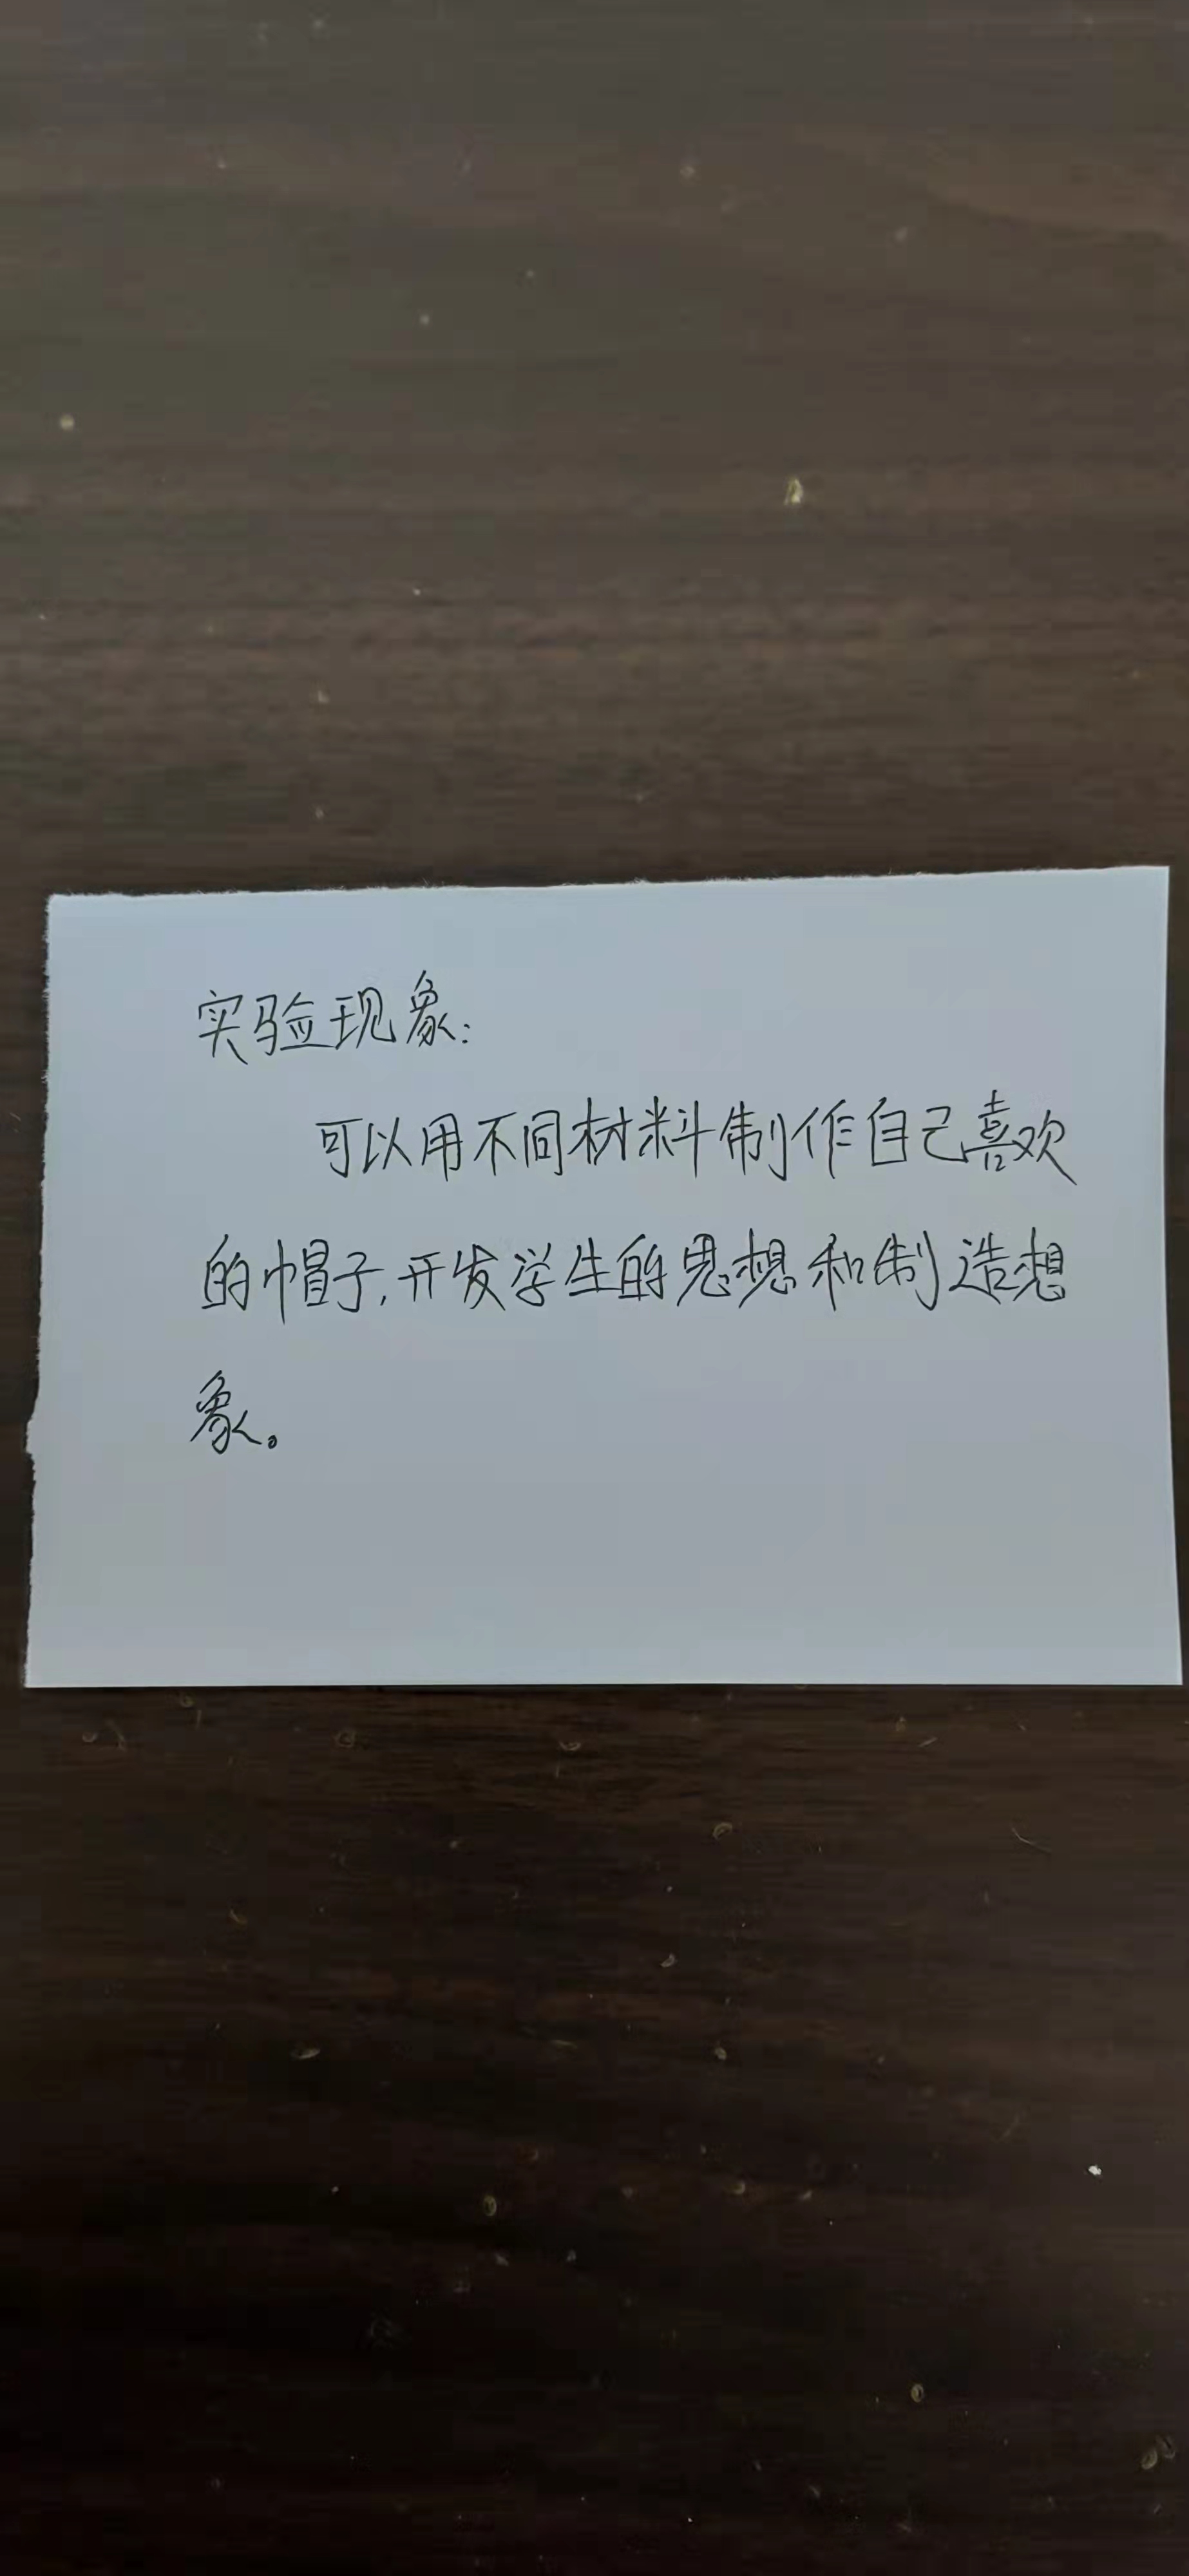 实验现象:
可以用不同材料制作自己喜欢
的帽子,开发学生的思想和制造想
象。